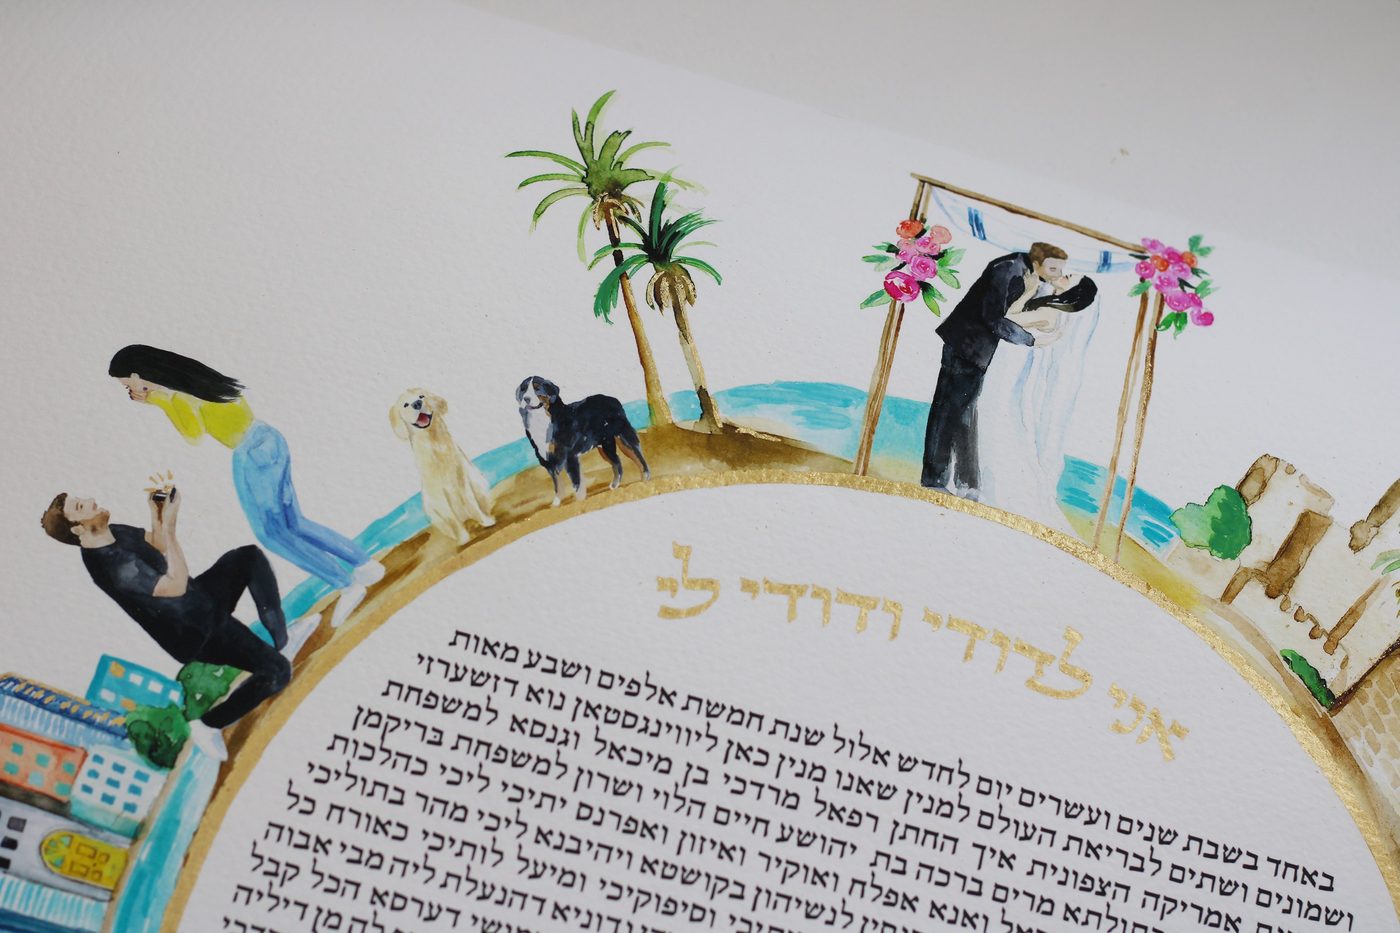 אני לדודי ודודי לי
באחד בשבת שנים ועשרים יום לחדש אלול שנת חמשת אלפים ושבע מאות
ושמונים ושתים לבריאת העולם למנין שאנו מנין כאן ליווינגסטאן נוא דזשערזי
אמריקה הצפונית איך החתן רפאל מרדכי בן מיכאל וגנסא למשפחת
בתולתא מרים ברכה בת יהושע חיים הלוי ושרון למשפחת בריקמן
ואנא אפלח ואוקיר ואיזון ואפרנס יתיכי ליכי כהלכות
לנשיהון בקושטא ויהיבנא ליכי מהר בתוליכי
וסיפוקיכי ומיעל לותיכי כאורח כל
ודוניא דהנעלת ליה מבי אבוה
דערסא הכל קבל
מן דיליה